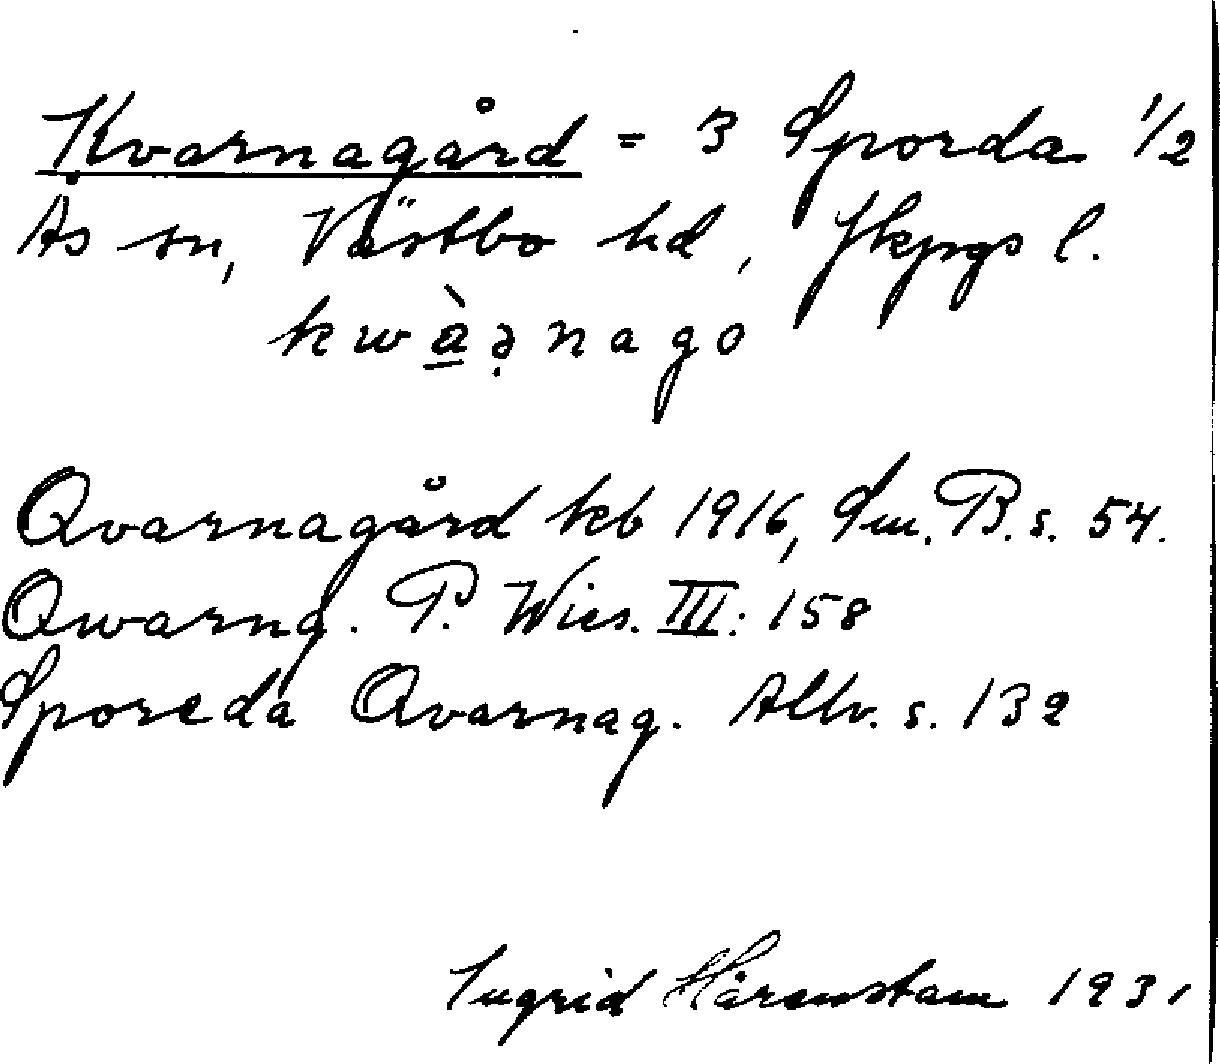 Kvarnagård = 3 Sporda 1/2
Ås sn, Västbo hd, Jkpgs l.
kwàənago
Qvarnagård kb 1916, Sm. B. s. 54.
Qwarng. P. Wies. III: 158
Sporeda Qvarnag. Allv. s. 132
Ingrid Hårenstam 1931